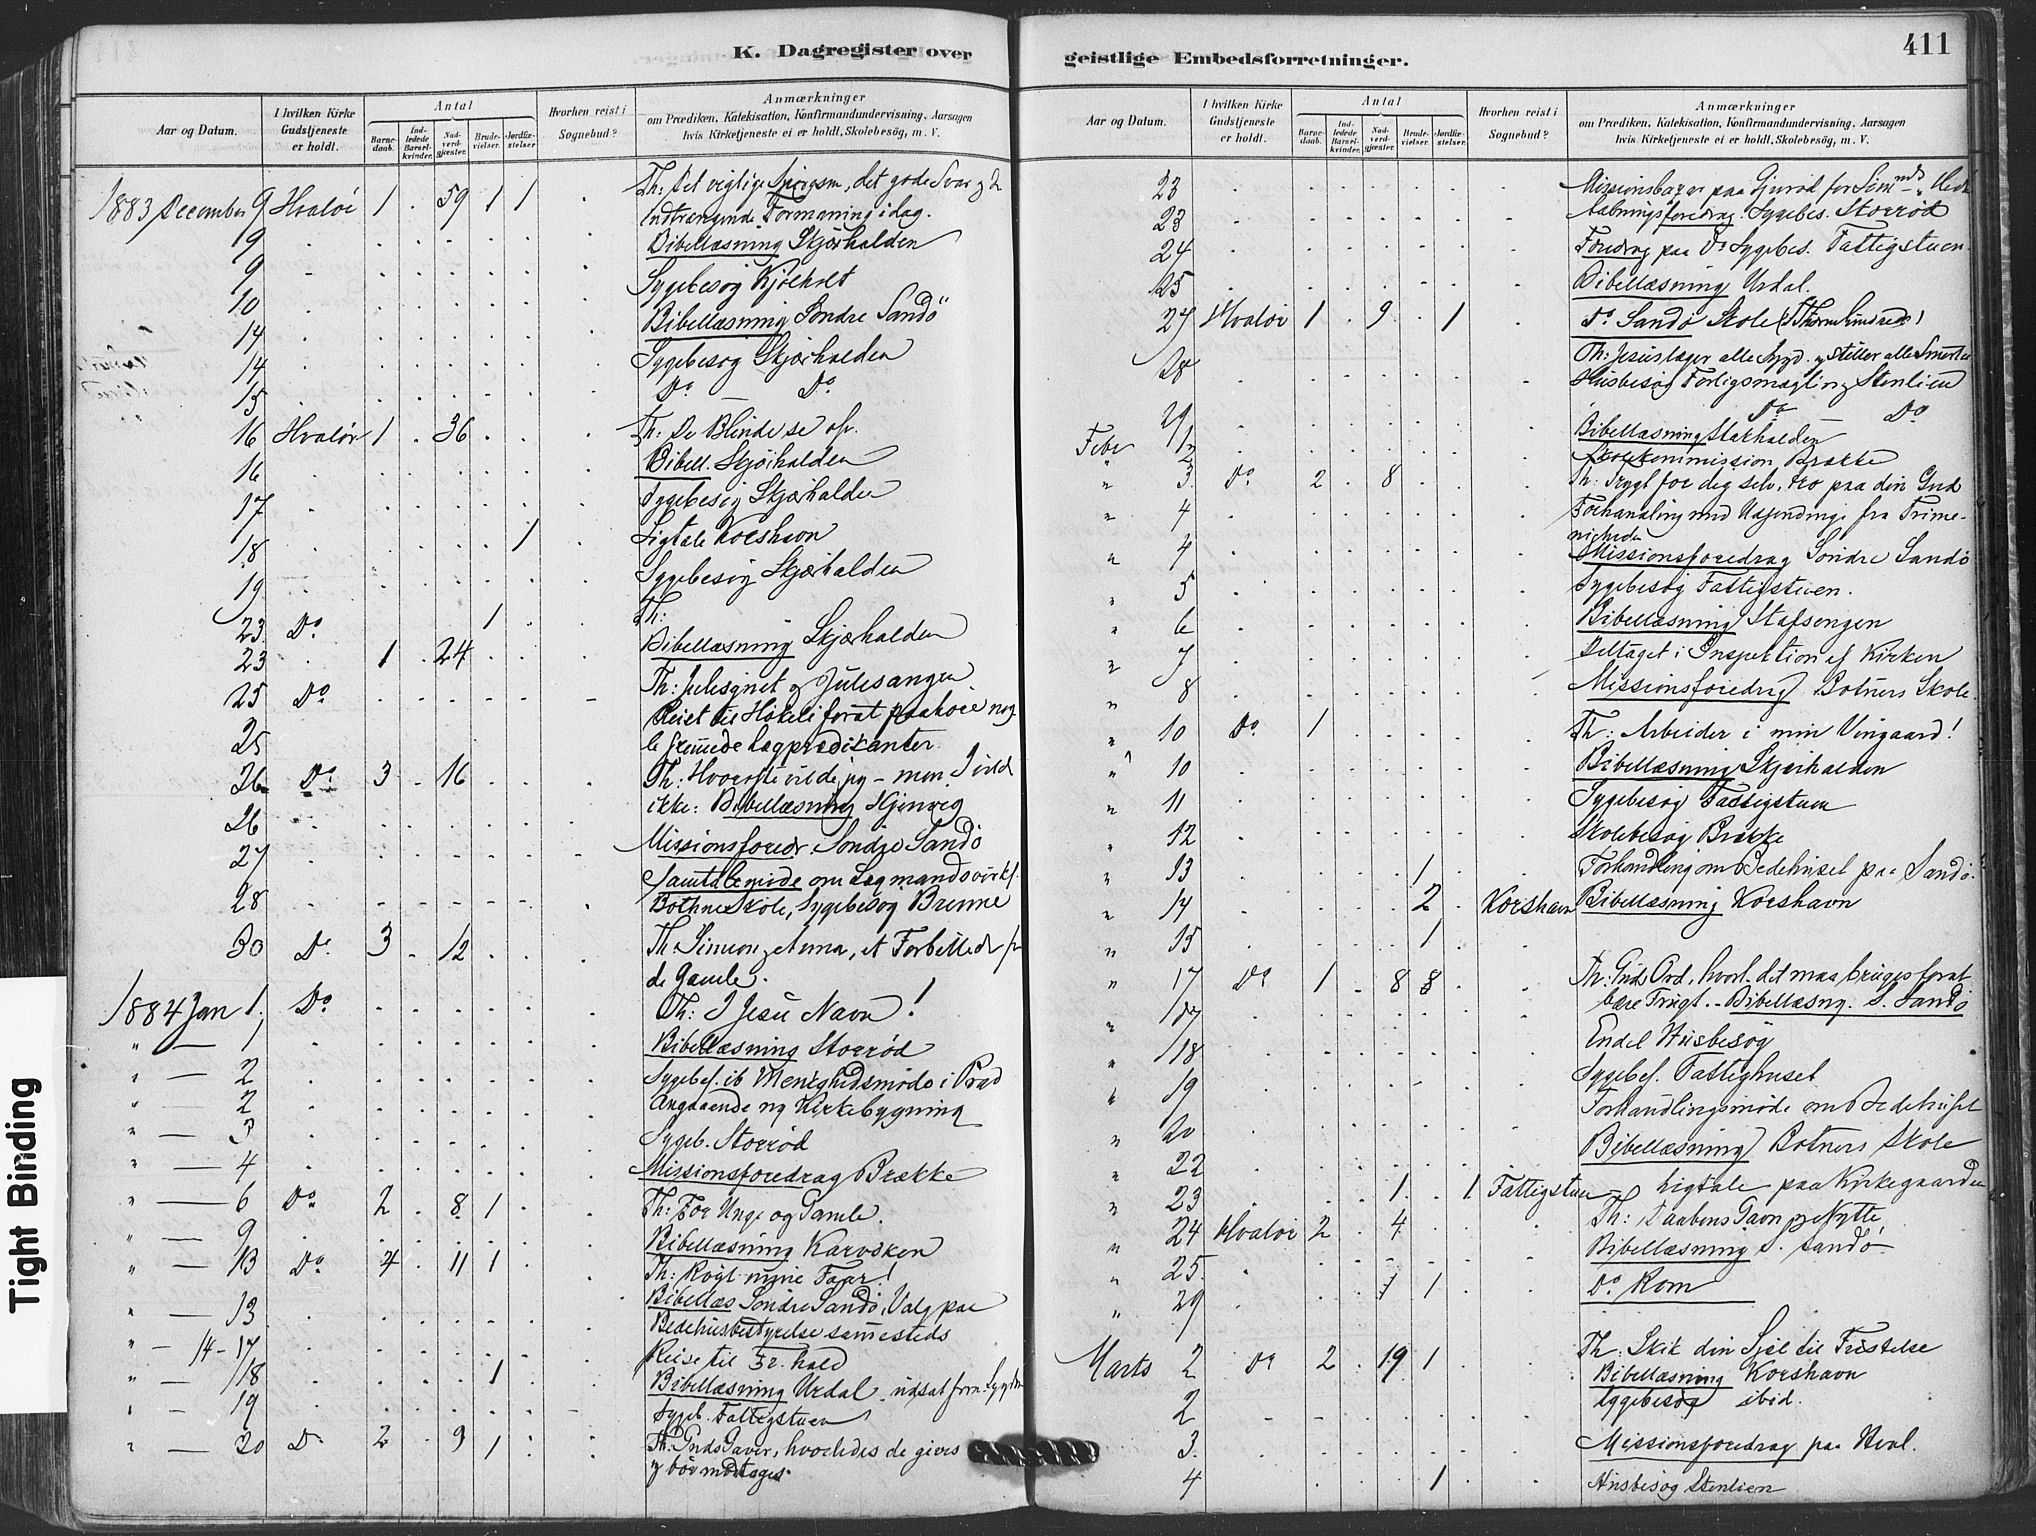 K. Dagregister over
Aar og Datum.
I hvilken Kirke Gudstjeneste er holdt.
Antal
Barnedaab.
Indledede Barselkvinder.
Nadverdgjæster.
Brudevielser.
Jordfæstelser
Hvorhen reist i Sognebud?
Anmærkninger
om Prædiken, Katekisation, Konfirmandundervisning, Aarsagen
hvis Kirketjeneste ei er holdt, Skolebesög, m. V.
1883 December 9 Hvalöi 1 . 59 1 1 Th: Det vigtige Spörgsm, det gode Svar
Indtrængende Formaning i dag.
9 Bibellæsning Skjærhalden
9 Sygebesög Kjölholt
10 Bibellæsning Söndre Sandö
14 Sygebesög Skjærhalden
14 Do — Do
15
16 Hvalöi 1 . 36 Th: De Blinde se
16 Bibell. Skjærhalden
17 Sygebesög Skjærhalden
18 1 Ligtale Korshavn
19 Sygebesög Skjærhalden
23 Do 1 Th:
23 1 . 24 Bibellæsning Skjærhalden
25 Do Th: Julesynet og Julesangen
25 Reiet til forat paahöre nog-
le fremmede Lægprædikanter.
26 Do 3 . 16 Th: Hvorofte vilde jeg – men I vild
ikke: Bibellæsning
26 Missionsforedr. Söndre Sandö
27 Samtalemöde om Lægmandsvirks.
28 Bothne Skole, Sygebesög Brenne
30 Do 3 . 12 Th: Simeon og Anna, et Forbilled for
de Gamle.
1884 Jan 1. Do Th: I Jesu Navn!
" — 1 Bibellæsning Storröd
" — 2 Sygebes. ib Menighedsmöde i Præd
" — 2 Angaaende ny Kirkebygning
" — 3 Sygeb. Storröd
" — 4 Missionsforedrag Brække
" — 6 Do 2 . 8 1 Th: For Unge og Gamle.
" — 9 Bibellæsning
" — 13 Do 4 . 11 1 Th: Rögt mine Faar!
" — 13 Bibellæs Söndre Sandö, Valg paa
Bedehusbestyrelse sammesteds
" — 14-17 Reise til Fr.hald
" — 18 1 Bibellæsning Urdal
" — 19 Sygeb. Fattigstuen
" — 20 Do 2 . 9 1 Th: Guds Gaver, hvorledes de gives
og bör modtages.
geistlige Embedsforretninger.
411
Aar og Datum.
I hvilken Kirke Gudstjeneste er holdt.
Antal
Barnedaab.
Indledede Barselkvinder.
Nadverdgjæster.
Brudevielser.
Jordfæstelser
Hvorhen reist i Sognebud?
Anmærkninger
om Prædiken, Katekisation, Konfirmandundervisning, Aarsagen
hvis Kirketjeneste ei er holdt, Skolebesög, m. V.
23 Missionsbazar paa
23 Aabningsforedrag. Sygebes. Storröd
24 Foredrag paa Do Sygebes. Fattigstuen
25 Bibellæsning Urdal.
27 Hvalöi 1 . 9 . 1 Do Sandö Skole
28 Th: Jesus læger alle Sygd. og stiller alle Smerter
Husbesög Forligsmægling Stenlien
29 Do — Do
Febr 1 Bibellæsning
Skolekommission Brække
" 3. Do 2 . 8 Th: Frygt for dig selv, tro paa din Gud
" 4 Forhandling med Udsendinge fra Frime-
nigheden
" 4 Missionsforedrag Söndre Sandö
" 5 Sygebesög Fattigstuen.
" 6 Bibellæsning Stafsengen
" 7 Deltaget i Inspektion af Kirken
" 8 Missionsforedrag Botners Skole.
" 10 Do 1 Th: Arbeider i min Vingaard!
" 10 Bibellæsning Skjærhalden
" 11 Sygebesög Fattigstuen
" 12 Skolebesög Brække
" 13 1 Forhandling om Bedehuset paa Sandö.
" 14 2 Korshavn Bibellæsning Korshavn
" 15 1
" 17 Do 1 . 8 8 Th: Guds Ord, hvorl. det maa bruges forat
bære Frugt. Bibellæsng. S. Sandö
" 17 Endel Husbesög
" 18 Sygebes. Fattighuset
" 19 Forhandlingsmöde om Bedehuset
" 20 Bibellæsning Botners Skole
" 22
" 23 1 . 1 Fattigstuen Ligtale paa Kirkegaarden
" 24 Hvalöi 2 . 4 Th: Daabens Gavn og Nytte.
" 25. Bibellæsning S. Sandö
" 29 1 1 Do Rom
Marts 2 Do 2 . 19 1 Th: Skik din Sjæl til Fristelse
Bibellæsning Korshavn
2 Sygebesög ibid.
3. Missionsforedrag paa Hval.
4 1 Husbesög Stenlien
Tight Binding